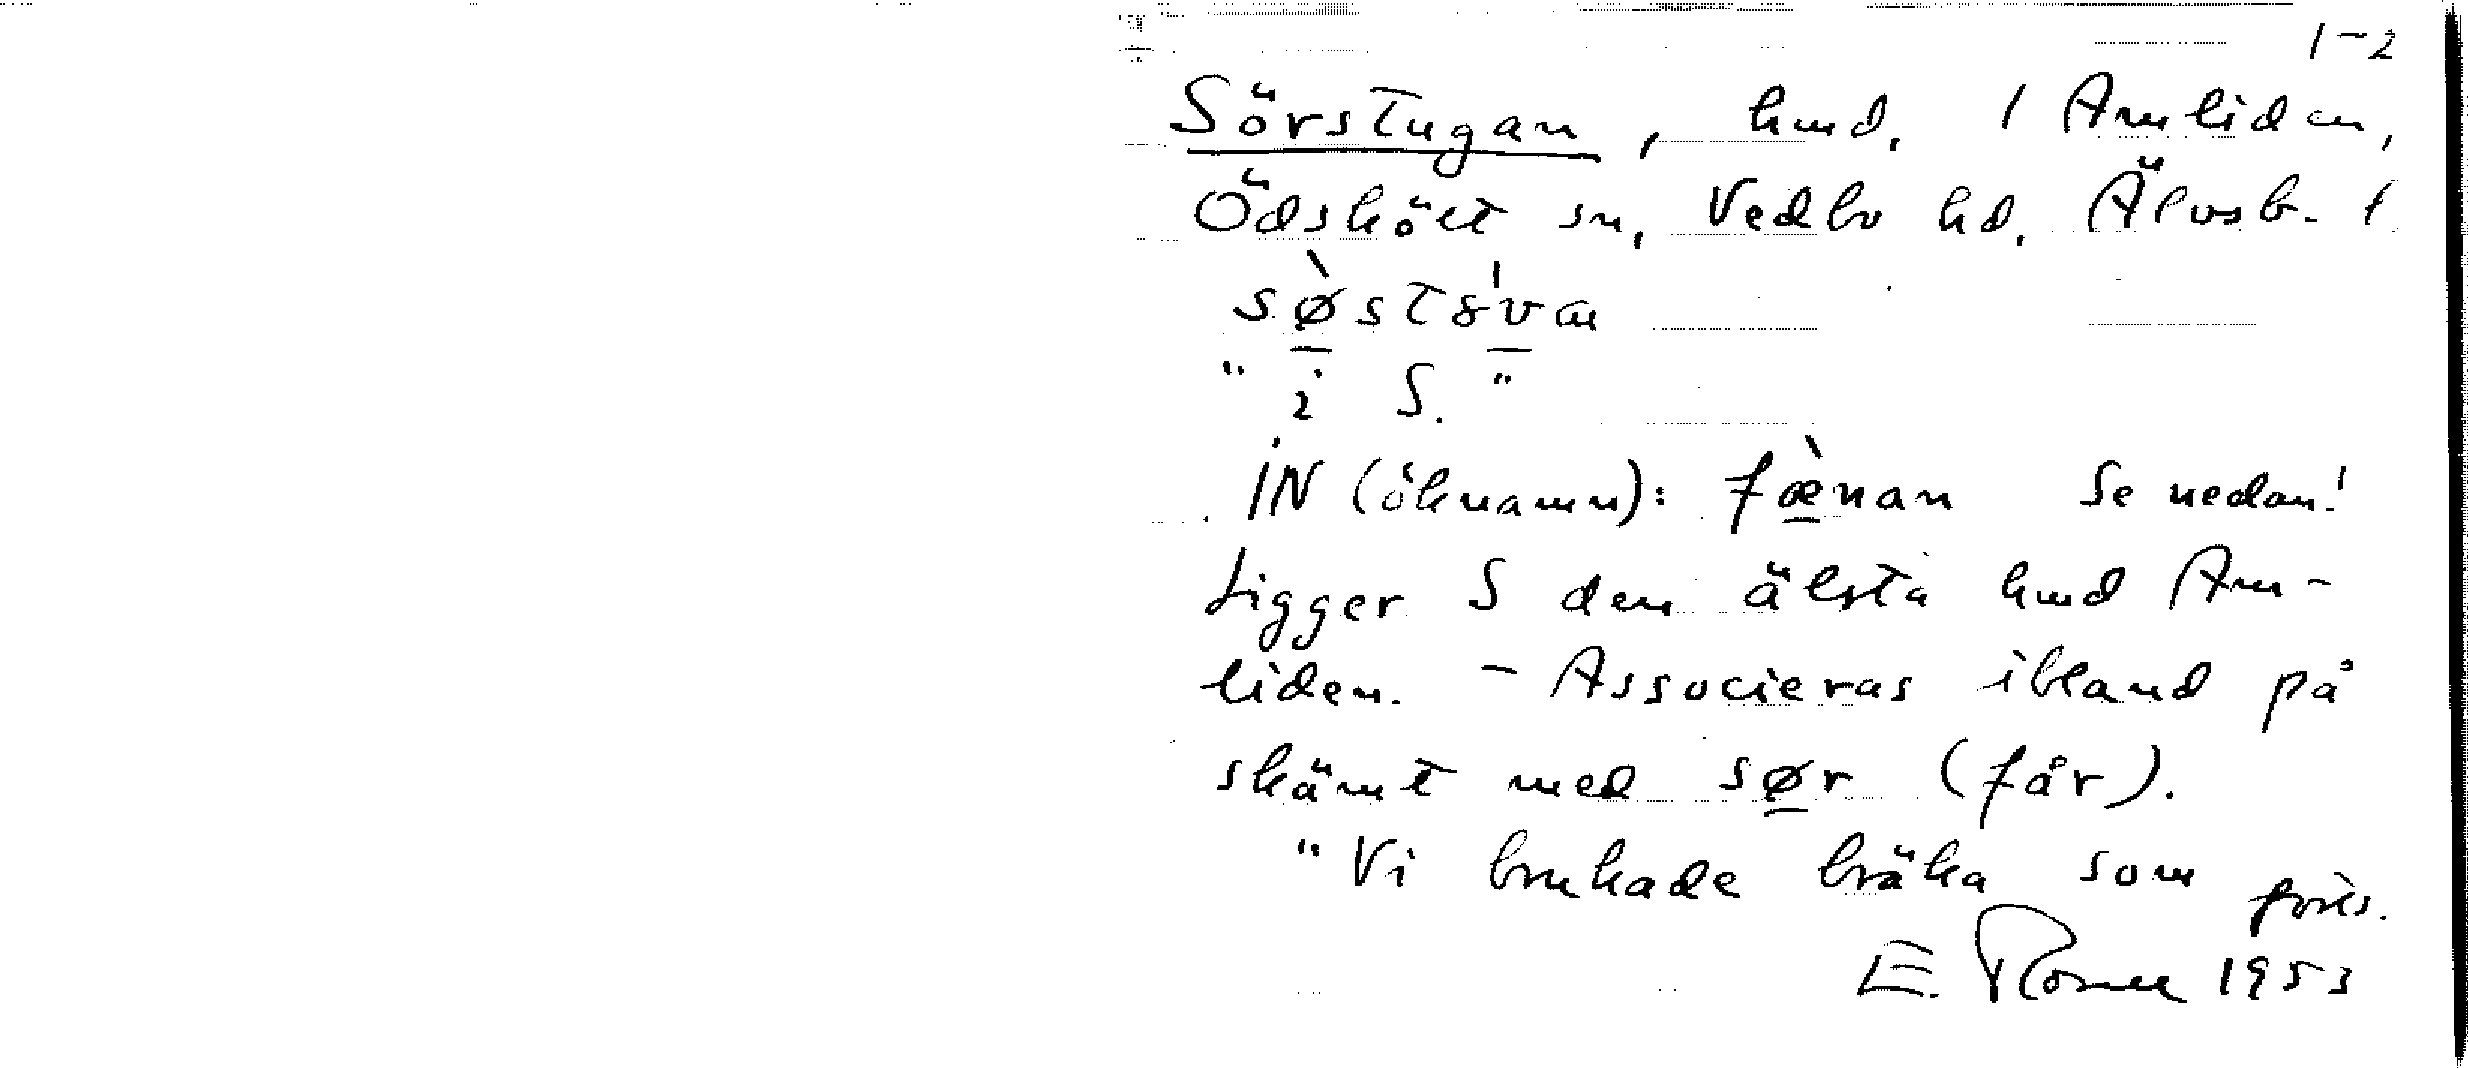 1-2
Sörstugan, hmd. 1 Amliden,
Ödskölt sn, Vedbo hd. Älvsb. l
sø̀stɤ́van
"i S."
IN (öknamn): fæ̀nan Se nedan!
Ligger S den älsta hmd Am-
liden. - Associeras ibland på
skämt med sør (får).
"Vi brukade bräka som
E. 1953